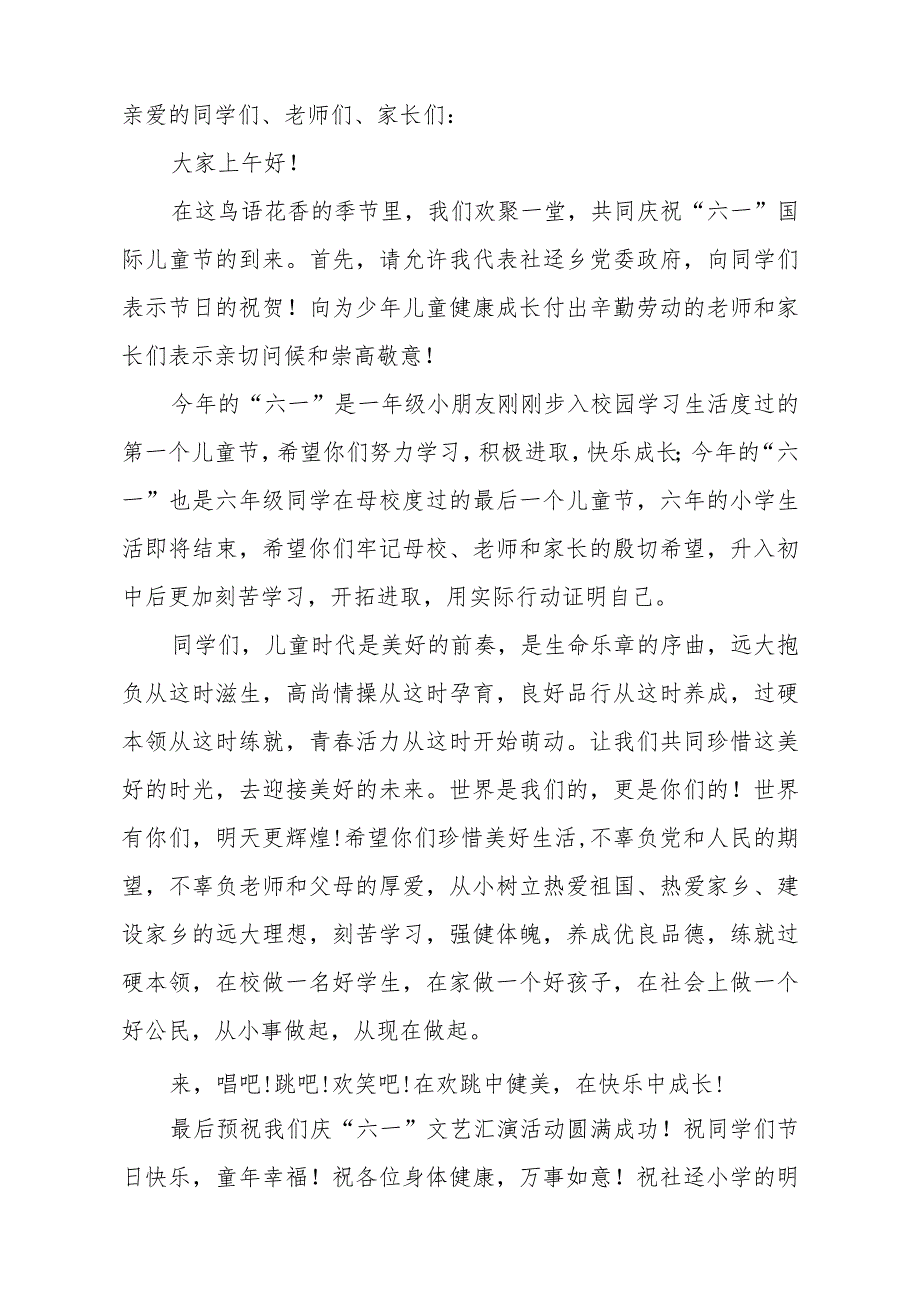 亲爱的同学们、老师们、家长们：
大家上午好！
在这鸟语花香的季节里，我们欢聚一堂，共同庆祝“六一”国
际儿童节的到来。首先，请允许我代表社迳乡党委政府，向同学们
表示节日的祝贺！向为少年儿童健康成长付出辛勤劳动的老师和家
长们表示亲切问候和崇高敬意！
今年的“六一”是一年级小朋友刚刚步入校园学习生活度过的
第一个儿童节,希望你们努力学习,积极进取,快乐成长;今年的“六
一”也是六年级同学在母校度过的最后一个儿童节，六年的小学生
活即将结束，希望你们牢记母校、老师和家长的殷切希望，升入初
中后更加刻苦学习，开拓进取，用实际行动证明自己。
同学们，儿童时代是美好的前奏，是生命乐章的序曲，远大抱
负从这时滋生，高尚情操从这时孕育，良好品行从这时养成，过硬
本领从这时练就，青春活力从这时开始萌动。让我们共同珍惜这美
好的时光，去迎接美好的未来。世界是我们的，更是你们的！世界
有你们，明天更辉煌!希望你们珍惜美好生活,不辜负党和人民的期
望，不辜负老师和父母的厚爱，从小树立热爱祖国、热爱家乡、建
设家乡的远大理想，刻苦学习，强健体魄，养成优良品德，练就过
硬本领，在校做一名好学生，在家做一个好孩子，在社会上做一个
好公民，从小事做起，从现在做起。
来，唱吧!跳吧!欢笑吧!在欢跳中健美，在快乐中成长!
最后预祝我们庆“六一”文艺汇演活动圆满成功！祝同学们节
日快乐，童年幸福！祝各位身体健康，万事如意！祝社迳小学的明